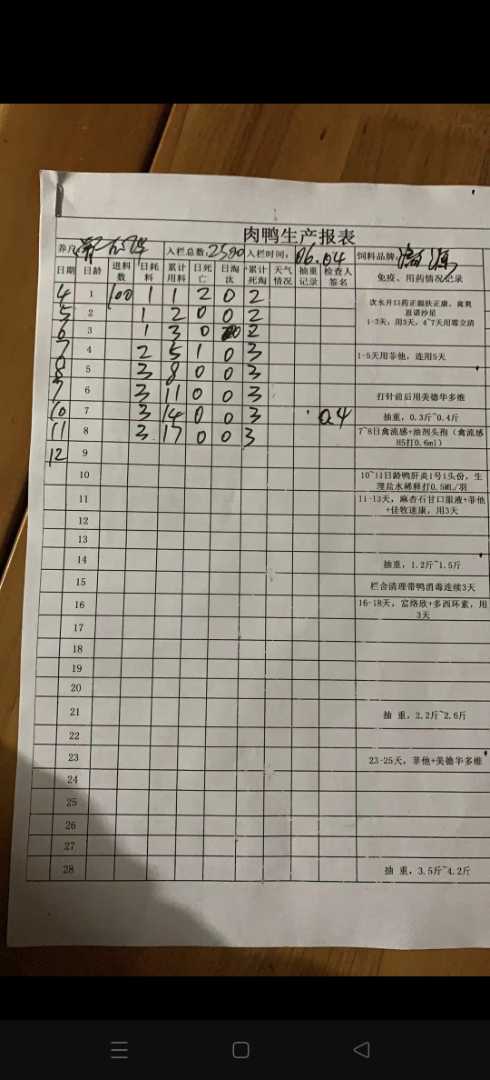 肉鸭生产报表
养户 入栏总数:2590 入栏时间:06.04 饲料品牌:
日期 日龄 进料数 日耗料 累计用料 日死亡 日淘汰 累计死淘 天气情况 抽重记录 检查人签名 免疫、用药情况记录
4 1 100 1 1 2 0 2 次水开口药正源扶正康、禽爽
恩诺沙星
1-3天，用3天，4~7天用霉立清
5 2 1 2 0 0 2
6 3 1 3 0 0 2
7 4 2 5 1 0 3 1-5天用菲他，连用5天
8 5 3 8 0 0 3
9 6 3 11 0 0 3 打针前后用美德华多维
10 7 3 14 0 0 3 0.4 抽重，0.3斤~0.4斤
11 8 3 17 0 0 3 7~8日禽流感+油剂头孢（禽流感
H5打0.6ml）
12 9
10 10~11日龄鸭肝炎1号1头份，生
理盐水稀释打0.5ML/羽
11 11-13天，麻杏石甘口服液+菲他
+佳牧速康，用3天
12
13
14 抽重，1.2斤~1.5斤
15 栏舍清理带鸭消毒连续3天
16 16-18天，富络欣+多西环素，用
3天
17
18
19
20
21 抽 重，2.2斤~2.6斤
22
23 23-25天，菲他+美德华多维
24
25
26
27
28 抽 重，3.5斤~4.2斤